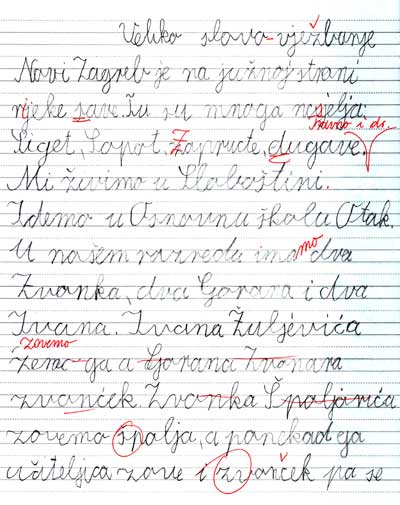 Veliko slovo-vježbanje
Novi Zagreb je na južnoj strani
rijeke save. Tu su mnoga naselja:
Ravno i dr.
Siget, Sopot, Zapruđe, dugave.
Mi živimo u Sloboštini.
Idemo u Osnovnu školu Otok.
U našem razredu imamo dva
Zvonka, dva Gorana i dva
Ivana. Ivana Žuljevića
zovemo
ga a Gorana Zvonara
zvonček. Zvonka Špoljarića
zovemo špolja, a ponekad ga
učiteljica zove i zvonček pa se